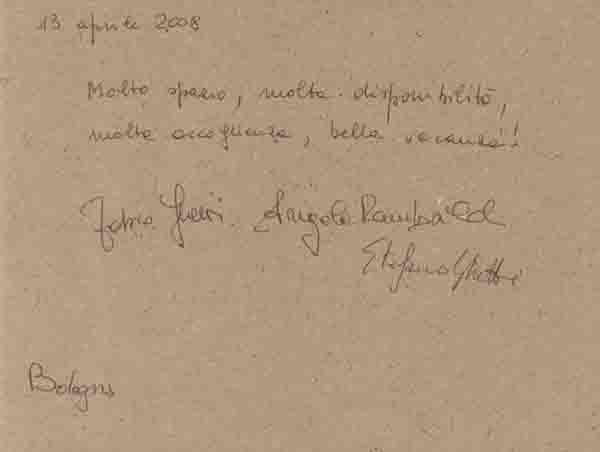 13 aprile 2008
Molto spazio, molta disponibilità,
molta accoglienza, bella vacanza!
Fabio Angela Rambaldi
Stefano Ghetti
Bologna